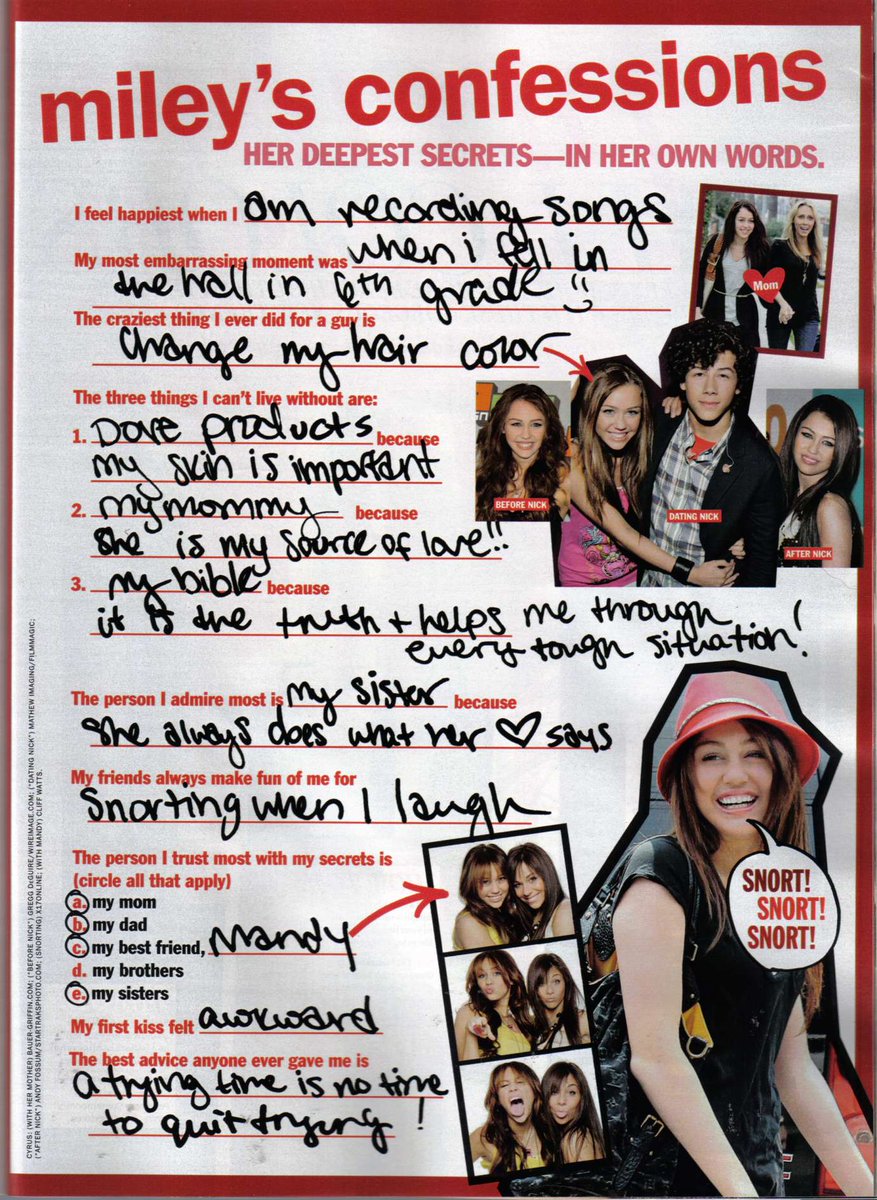 miley's confessions
HER DEEPEST SECRETS—IN HER OWN WORDS.
I feel happiest when I am recording songs
My most embarrassing moment was when i fell in
the hall in 6th grade :)
The craziest thing I ever did for a guy is
change my hair color
The three things I can't live without are:
1. Dove products because
my skin is important
2. my mommy because
she is my source of love!!
3. my bible because
it is the truth + helps me through
every tough situation!
Mom
BEFORE NICK
DATING NICK
AFTER NICK
The person I admire most is my sister because
she always does what her ♡ says
My friends always make fun of me for
Snorting when I laugh
The person I trust most with my secrets is
(circle all that apply)
a. my mom
b. my dad
c. my best friend, Mandy
d. my brothers
e. my sisters
My first kiss felt awkward
The best advice anyone ever gave me is
a trying time is no time
to quit trying!
SNORT!
SNORT!
SNORT!
CYRUS: (WITH HER MOTHER) BAUER-GRIFFIN.COM; ("BEFORE NICK") GREGG DeGUIRE/WIREIMAGE.COM; ("DATING NICK") MATHEW IMAGING/FILMMAGIC;
("AFTER NICK") ANDY FOSSUM/STARTRAKSPHOTO.COM; (SNORTING) X17ONLINE; (WITH MANDY) CLIFF WATTS.